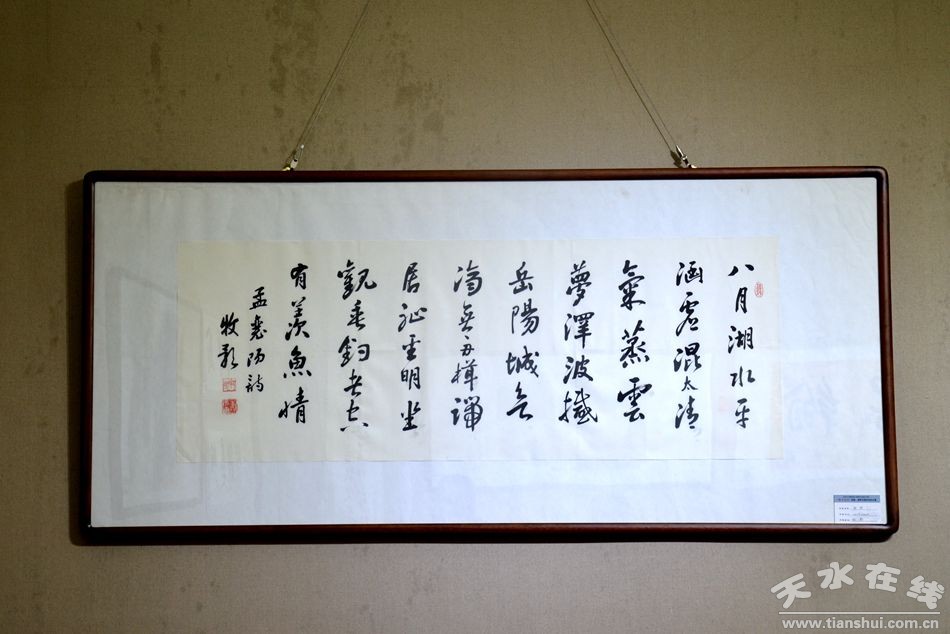 八月湖水平
涵虛混太清
氣蒸雲
夢澤波撼
岳陽城欲
濟無舟楫端
居恥聖明坐
觀垂釣者空
有羨魚情
孟襄陽詩
牧
天水在线
www.tianshui.com.cn